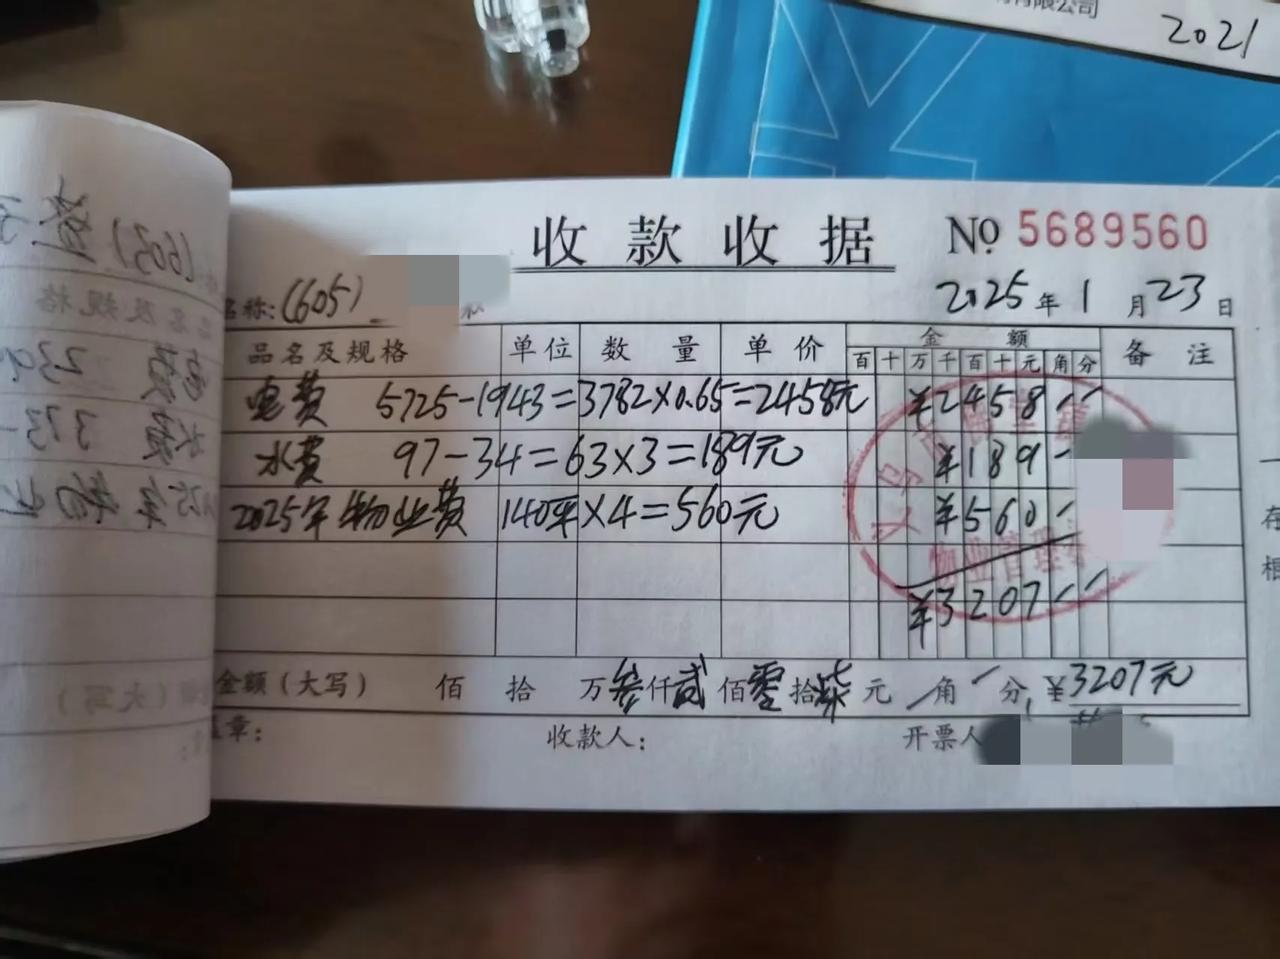 有限公司
2021
收款收据
№ 5689560
名称:(605)
2025年1月23日
品名及规格 单位 数量 单价 金额 备注
百十万千百十元角分
电费 5725-1943=3782×0.65=2458元 ¥2458
水费 97-34=63×3=189元 ¥189
2025年物业费 140平×4=560元 ¥560
物业管理
¥3207
金额(大写) 佰 拾 万叁仟贰佰零拾柒元 角 分 ¥3207元
盖章: 收款人: 开票人